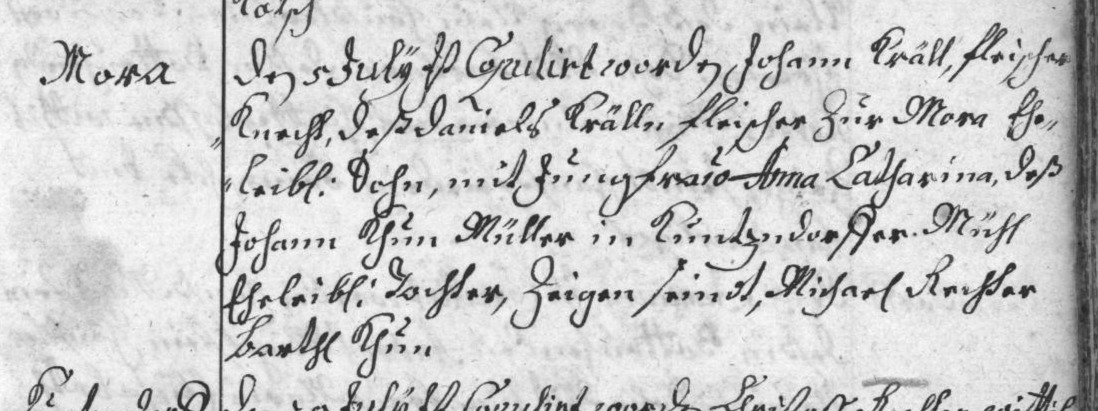 Mora
den 5 July ist Copulirt worden Johann Kräll, fleischer
Knecht, deß daniels Krälln fleischer Zur Mora Ehe„
„leibl: Sohn, mit Jungfrau Anna Catharina, deß
Johann Khun Müller in Kuntzendorffer Mühl
Eheleibl: Tochter, Zeigen seindt, Michael Rechter
Barthl Khun
July ist Copulirt worden